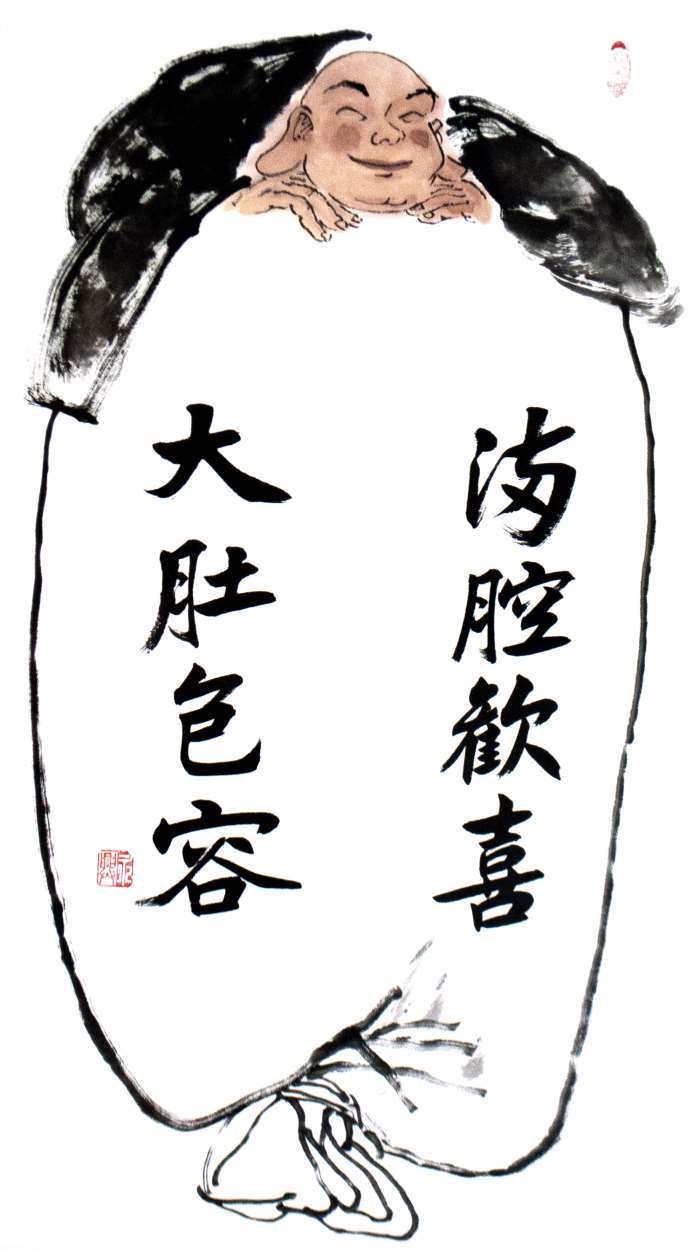 满腔歡喜
大肚包容